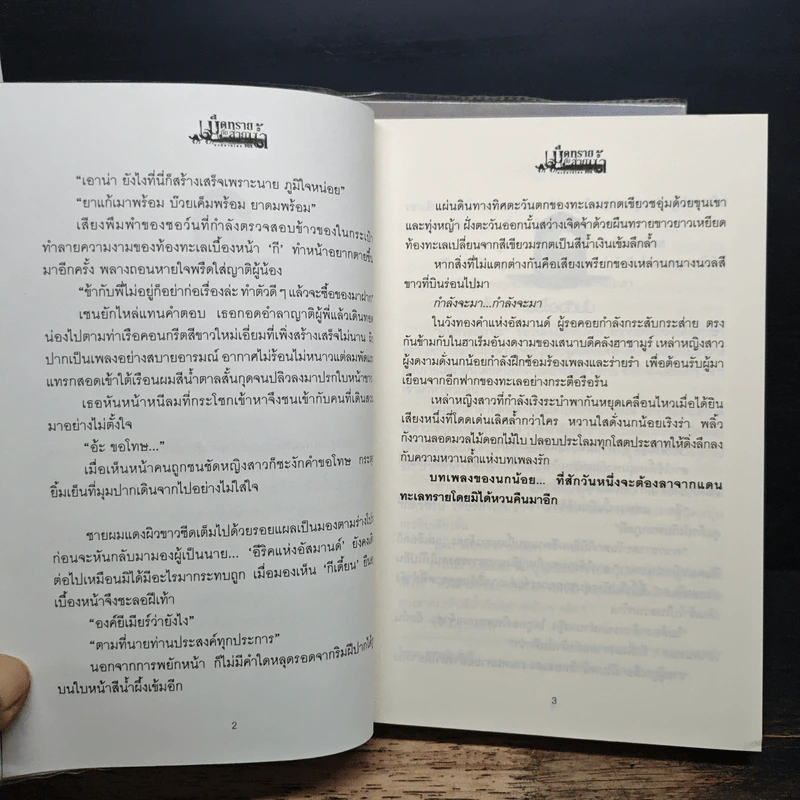 เม็ดทราย
สายน้ำ
"เอาน่า ยังไงที่นี่ก็สร้างเสร็จเพราะนาย ภูมิใจหน่อย"
"ยาแก้เมาพร้อม บ๊วยเค็มพร้อม ยาดมพร้อม"
เสียงพึมพำของชอว์นที่กำลังตรวจสอบข้าวของในกระเป๋า
ทำลายความงามของท้องทะเลเบื้องหน้า 'กี' ทำหน้าอยากตายขึ้น
มาอีกครั้ง พลางถอนหายใจพรืดใส่ญาติผู้น้อง
"ข้ากับพี่ไม่อยู่ก็อย่าก่อเรื่องล่ะ ทำตัวดีๆ แล้วจะซื้อของมาฝาก"
เซนยักไหล่แทนคำตอบ เธอกอดอำลาญาติผู้พี่แล้วเดินทอด
น่องไปตามท่าเรือคอนกรีตสีขาวใหม่เอี่ยมที่เพิ่งสร้างเสร็จไม่นาน
ปากเป็นเพลงอย่างสบายอารมณ์ อากาศไม่ร้อนไม่หนาวแต่ลมพัด
แทรกสอดเข้าใต้เรือนผมสีน้ำตาลสั้นกุดจนปลิวลงมาปรกใบหน้า
เธอหันหน้าหนีลมที่กระโชกเข้าหาจึงชนเข้ากับคนที่เดิน
มาอย่างไม่ตั้งใจ
"อ้ะ ขอโทษ..."
เมื่อเห็นหน้าคนถูกชนชัดหญิงสาวก็ชะงักคำขอโทษ
ยิ้มเย็นที่มุมปากเดินจากไปอย่างไม่ใส่ใจ
ชายผมแดงผิวขาวซีดเต็มไปด้วยรอยแผลเป็นมองตามร่าง
ก่อนจะหันกลับมามองผู้เป็นนาย... 'อีริคแห่งอัสมานด์' ยังคง
ต่อไปเหมือนมิได้มีอะไรมากระทบถูก เมื่อมองเห็น 'กีเดี้ยน' ยืน
เบื้องหน้าจึงชะลอฝีเท้า
"องค์ยีเมียร์ว่ายังไง"
"ตามที่นายท่านประสงค์ทุกประการ"
นอกจากการพยักหน้า ก็ไม่มีคำใดหลุดรอดจากริมฝีปาก
บนใบหน้าสีน้ำผึ้งเข้มอีก
2
เม็ดทราย
สายน้ำ
แผ่นดินทางทิศตะวันตกของทะเลมรกตเขียวชอุ่มด้วยขุนเขา
และทุ่งหญ้า ฝั่งตะวันออกนั้นสว่างเจิดจ้าด้วยผืนทรายขาวยาวเหยียด
ท้องทะเลเปลี่ยนจากสีเขียวมรกตเป็นสีน้ำเงินเข้มลึกล้ำ
หากสิ่งที่ไม่แตกต่างกันคือเสียงเพรียกของเหล่านกนางนวลสี
ขาวที่บินร่อนไปมา
กำลังจะมา...กำลังจะมา
ในวังทองคำแห่งอัสมานด์ ผู้รอคอยกำลังกระสับกระส่าย ตรง
กันข้ามกับในฮาเร็มอันงดงามของเสนาบดีคลังฮาซามูร์ เหล่าหญิงสาว
ผู้งดงามดั่งนกน้อยกำลังฝึกซ้อมร้องเพลงและร่ายรำ เพื่อต้อนรับผู้มา
เยือนจากอีกฟากของทะเลอย่างกระตือรือร้น
เหล่าหญิงสาวที่กำลังเริงระบำพากันหยุดเคลื่อนไหวเมื่อได้ยิน
เสียงหนึ่งที่โดดเด่นเลิศล้ำกว่าใคร หวานใสดั่งนกน้อยเริงร่า พลิ้ว
กังวานลอดมวลไม้ดอกไม้ใบ ปลอบประโลมทุกโสตประสาทให้ดิ่งลึกลง
กับความหวานล้ำแห่งบทเพลงรัก
บทเพลงของนกน้อย... ที่สักวันหนึ่งจะต้องลาจากแดน
ทะเลทรายโดยมิได้หวนคืนมาอีก
3